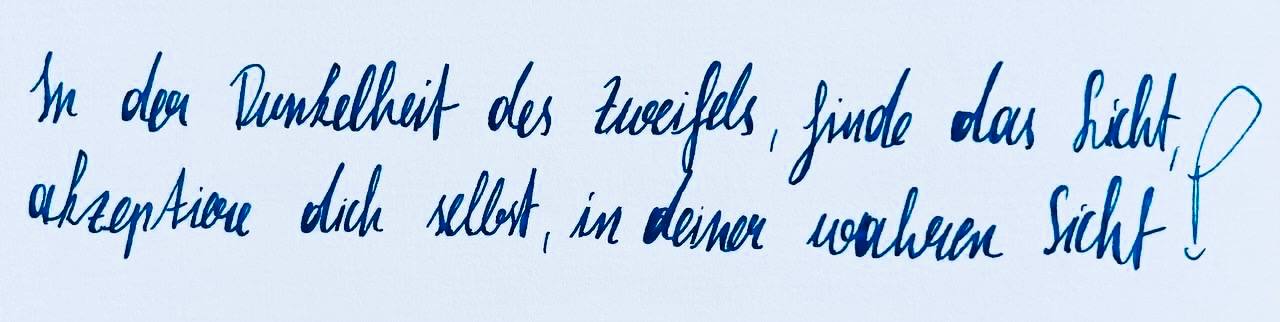 In der Dunkelheit des Zweifels, finde das Licht,
akzeptiere dich selbst, in deiner wahren Sicht!